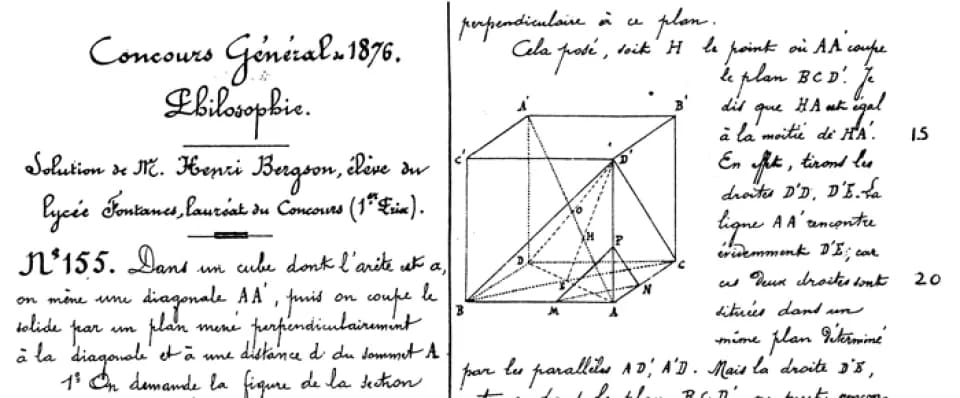 Concours Général de 1876.
Philosophie.
Solution de M. Henri Bergson, élève du
lycée Fontanes, lauréat du Concours (1er Prix).
N° 155. Dans un cube dont l'arête est a,
on mène une diagonale AA', puis on coupe le
solide par un plan mené perpendiculairement
à la diagonale et à une distance d du sommet A
1° On demande la figure de la section
perpendiculaire à ce plan.
Cela posé, soit H le point où AA' coupe
le plan BCD'. Je
dis que HA est égal
à la moitié de HA'.
15
En effet, tirons les
droites D'D, D'E. La
ligne AA' rencontre
évidemment D'E; car
ces deux droites sont
20
situées dans un
même plan déterminé
par les parallèles AD', A'D. Mais la droite D'E,
A'
B'
C'
D'
O
H
P
D
E
C
N
B
M
A